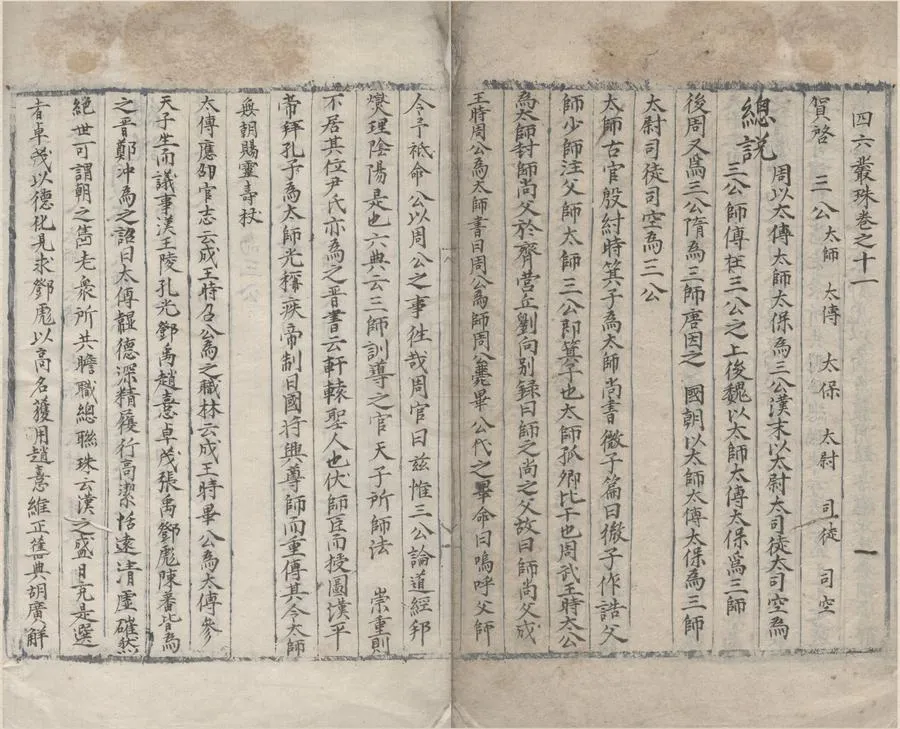 四六叢珠卷之十一
賀啓　三公　太師　太傅　太保　太尉　司徒　司空　一
總説　周以太傅太師太保為三公漢末以太尉太司徒太司空為
三公師傅在三公之上後魏以太師太傅太保爲三師
後周又爲三公隋為三師唐因之　國朝以太師太傅太保為三師
太尉司徒司空為三公
太師古官殷紂時箕子為太師尚書微子篇曰微子作誥父
師少師注父師太師三公即箕子也太師孤卿比干也周武王時太公
為太師封師尚父於齊營丘劉向别録曰師之尚之父故曰師尚父成
王時周公為太師書曰周公為師周公薨畢公代之畢命曰嗚呼父師
今予祇命公以周公之事徃哉周官曰兹惟三公論道經邦
燮理陰陽是也六典云三師訓導之官天子所師法　崇重則
不居其位尹氏亦為之晋書云軒轅聖人也伏師臣而授圖漢平
帝拜孔子為太師光稱疾帝制曰國將興尊師而重傅其令太師
無朝賜靈壽杖
太傅應卲官志云成王時召公為之職林云成王時畢公為太傅參
天子坐而議事漢王陵孔光鄧禹趙憙卓茂張禹鄧彪陳蕃皆為
之晋鄭冲為之詔曰太傅韞德深精履行高潔恬遠清虛確然
絶世可謂朝之雋老衆所共瞻職總聯珠云漢之盛日尤是選
者卓茂以德化見求鄧彪以高名獲用趙憙維正舊典胡廣解